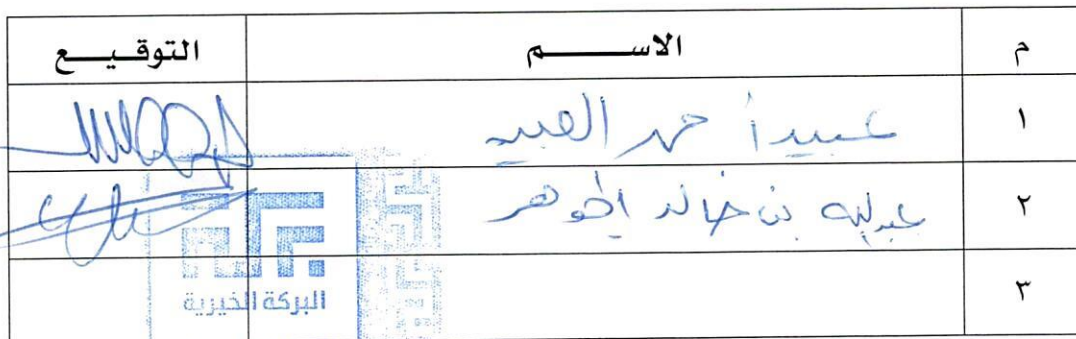 م الاسم التوقيع
١ عبيد أحمد العبيد
٢ عبدالله بن خالد الجوهر
٣
البركة الخيرية